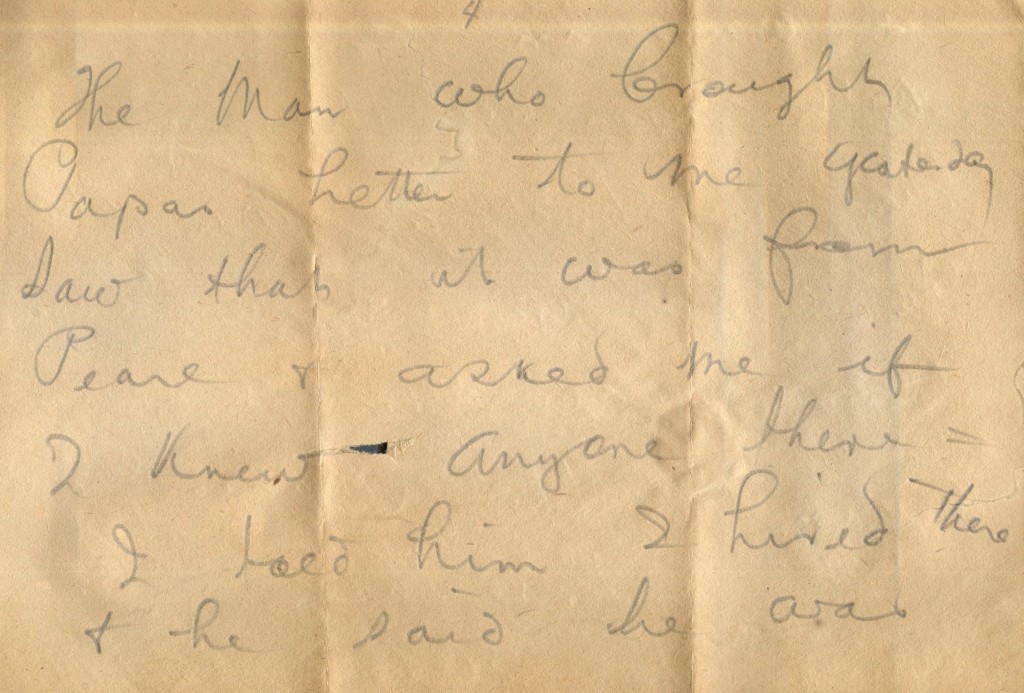 4
The Man who brought
Papas Letter to me yesterday
Saw that it was from
& asked me if
I Knew anyone there =
I told him I lived there
& he said he was